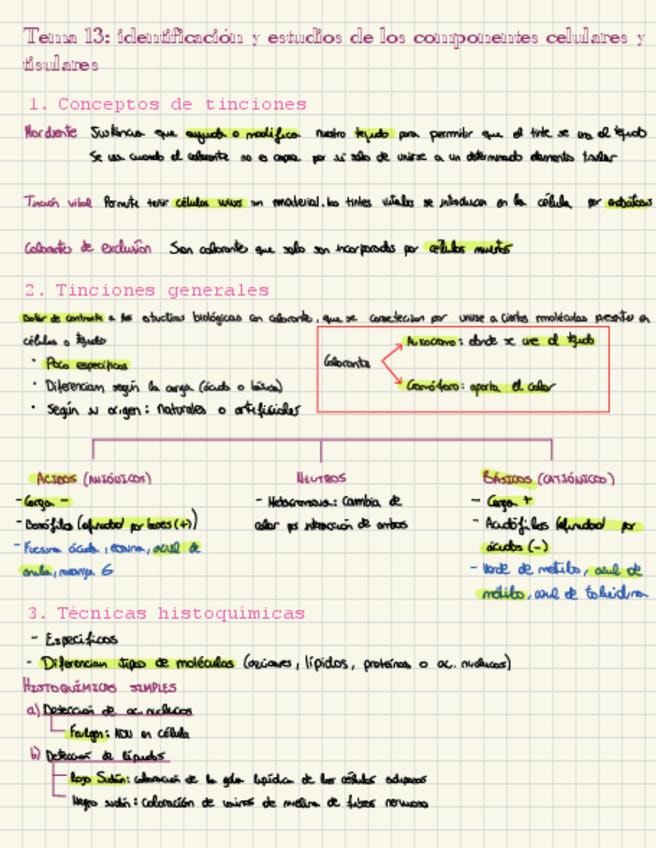 Tema 13: identificación y estudios de los componentes celulares y
tisulares
1. Conceptos de tinciones
Mordiente Sustancias que ayuda o modifica nuestro tejido para permitir que el tinte se una al tejido
Se usa cuando el colorante no es capaz por si solo de unirse a un determinado elemento tisular
Tinción vital Permite teñir células vivas sin material. Los tintes vitales se introducen en la célula por endocitosis
Colorantes de exclusión Son colorante que solo son incorporados por células muertas
2. Tinciones generales
Dotar de contraste a las estructuras biológicas con colorante, que se caracterizan por unirse a ciertas moléculas presentes en
células o tejidos
· Poco específicas
· Diferencian según la carga (ácida o básica)
· Según su origen: naturales o artificiales
Colorante
Auxocromo: donde se une el tejido
Cromóforo: aporta el color
ÁCIDOS (ANIÓNICOS)
- Carga -
- Basófilos (afinidad por bases (+))
- Fucsina ácida, eosina, azul de
anilina, naranja G
NEUTROS
- Metacromasia: cambia de
color por interacción de ambos
BÁSICOS (CATIÓNICO)
- Carga +
- Acidófilas (afinidad por
ácidos (-)
- Verde de metilo, azul de
metilo, azul de toluidina
3. Técnicas histoquímicas
- Específicas
- Diferencian tipos de moléculas (azúcares, lípidos, proteínas o ac. nucleicos)
HISTOQUÍMICAS SIMPLES
a) Detección de ac. nucleicos
Feulgen: ADN en célula
b) Detección de lípidos
Rojo Sudán: coloración de la gota lipídica de las células adiposas
Negro sudán: coloración de vainas de mielina de fibras nerviosas